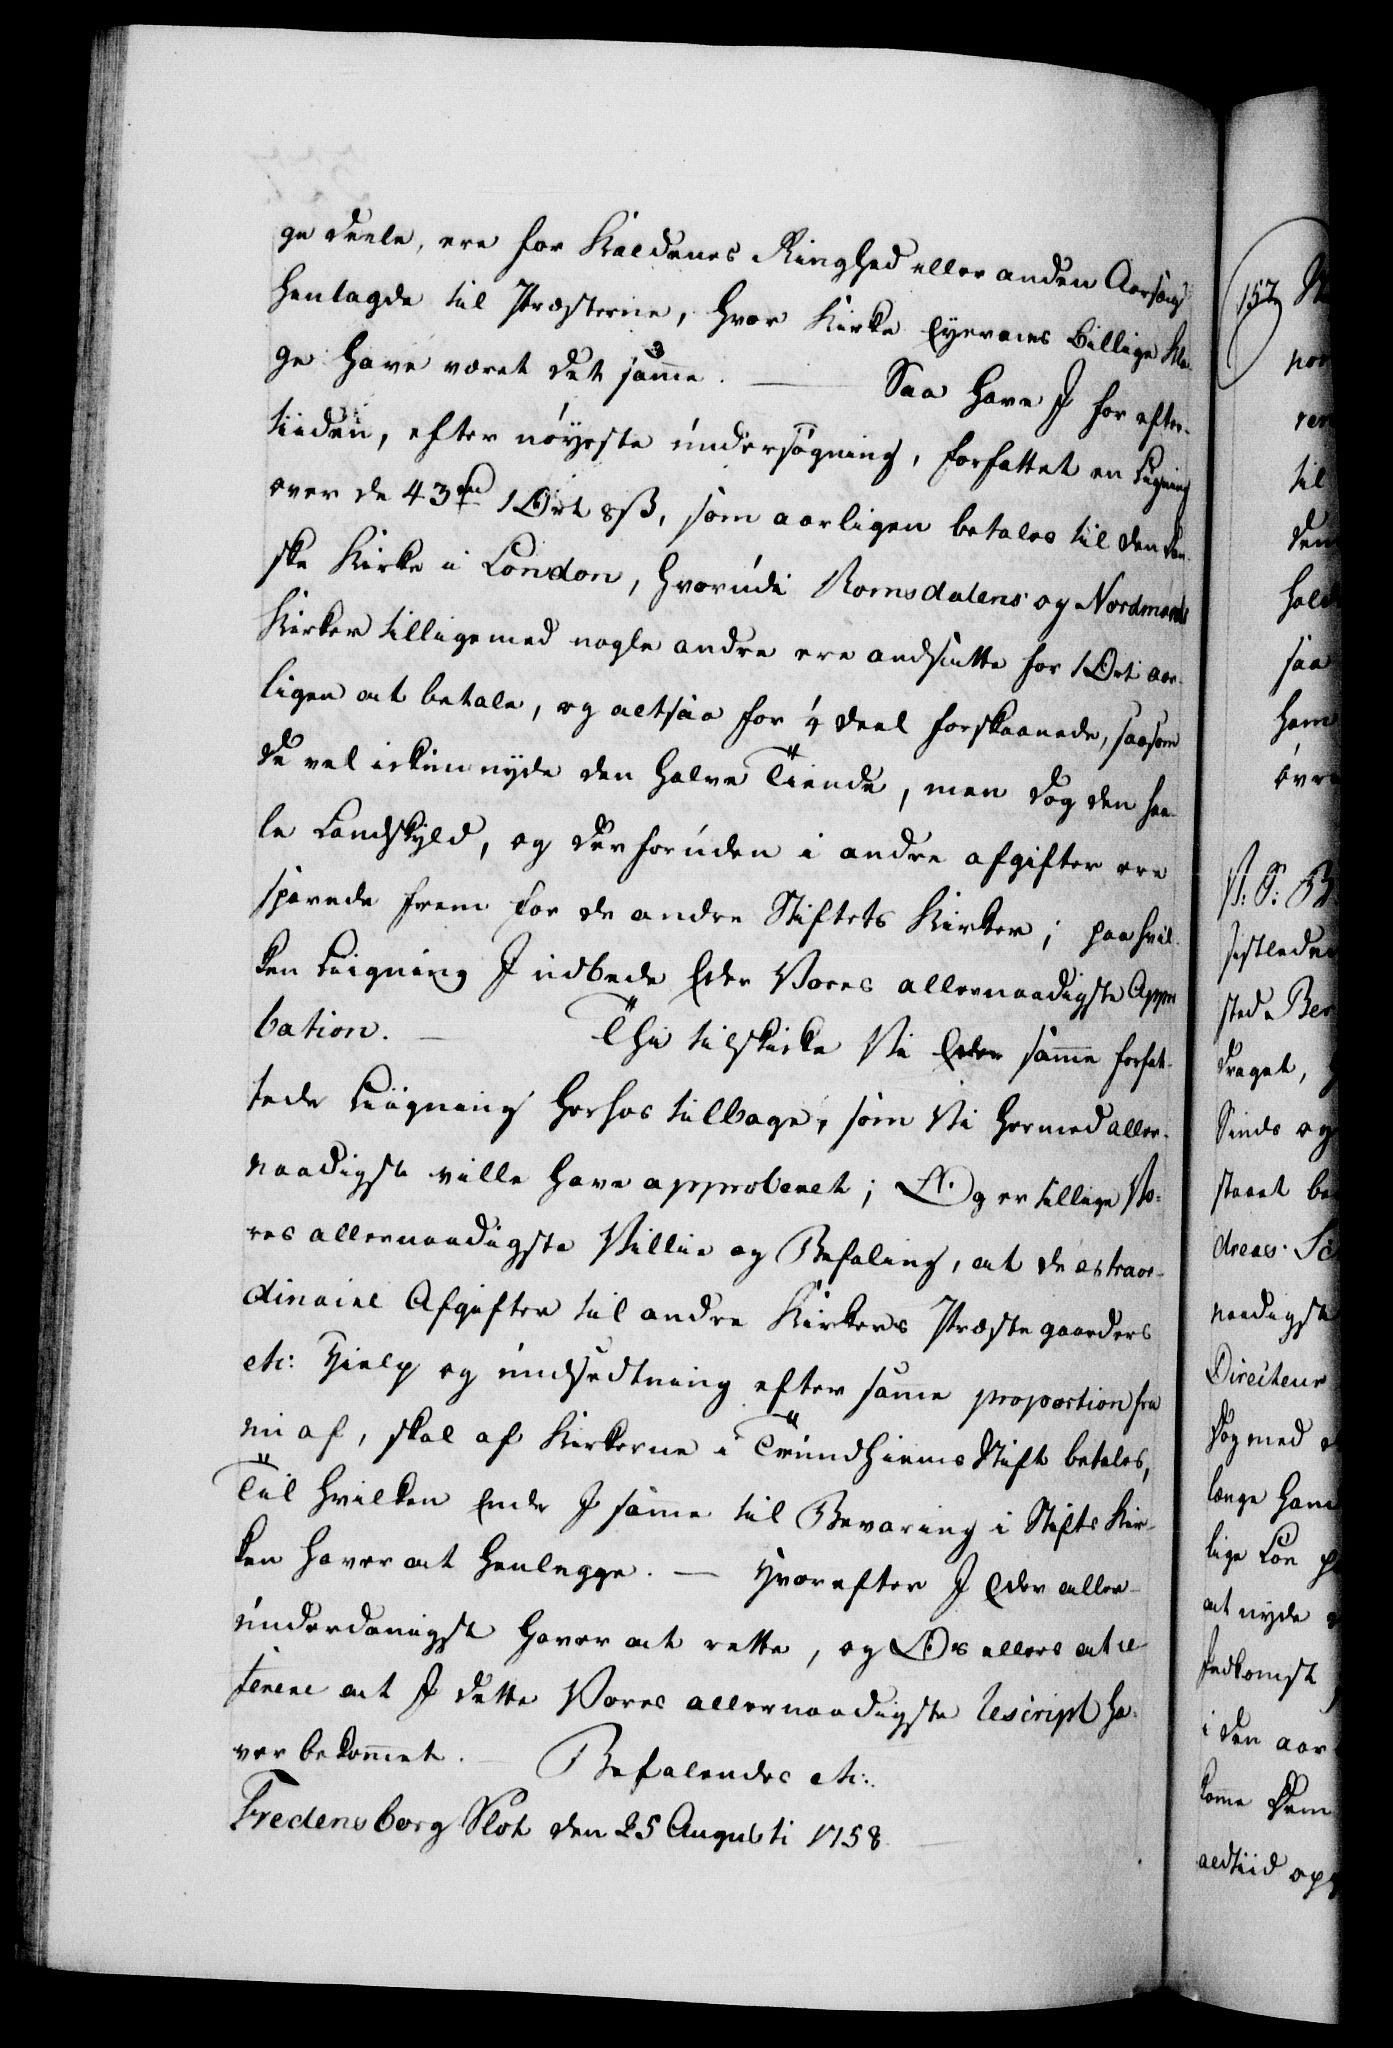 ge deele, ere for Kaldenes Ringhed eller anden Aarsag
henlagde til Præsterne, hvor Kirke Eyernes billige Kla-
ge have været det samme. — Saa have I for efter-
tiiden, efter nöyeste undersögning, forfattet en Ligning
over de 43 rd 1 Ort 8 ß, som aarligen betales til den dan-
ske Kirke i London, hvorudi Romsdalens og Nordmørs
Kirker tilligemed nogle andre ere andsatte for 1 Ort aar-
ligen at betale, og altsaa for ¼ deel forskaanede, saasom
de vel ickun nyde den halve Tiende, men dog den hee-
le Landskyld, og derforuden i andre afgifter ere
sparede frem for de andre Stiftets Kirker; paa hvil-
ken Liigning I udbede Eder Vores allernaadigste Appro
bation. — Thi tilskicke Vi Eder samme forfat-
tede Liigning herhos tilbage, som Vi hermed aller-
naadigst ville have approberet; Og er tillige Vo-
res allernaadigste Villie og Befaling, at de extraor-
dinaire Afgifter til andre Kirkers Præstegaarders
etc: Hielp og undsedtning efter samme proportion fra
nu af, skal af Kirkerne i Trundhiems Stift betales,
Til hvilken Ende I samme til Bevaring i Stifts Kir-
ken haver at henlegge. — Hvorefter I Eder aller-
underdanigst haver at rette, og Os ellers at ad
serere at I dette Vores allernaadigste Rescript ha-
ver bekommet. — Befalendes etc:
Fredensborg Slot den 25 Augusti 1758.
157
til
saa
V: S: B
sted
draget,
Sinds og
naadigste
Directeur
dog med
længe ham
lige Lön
at nyde
Indkomst
i den aar
komme dem
altiid